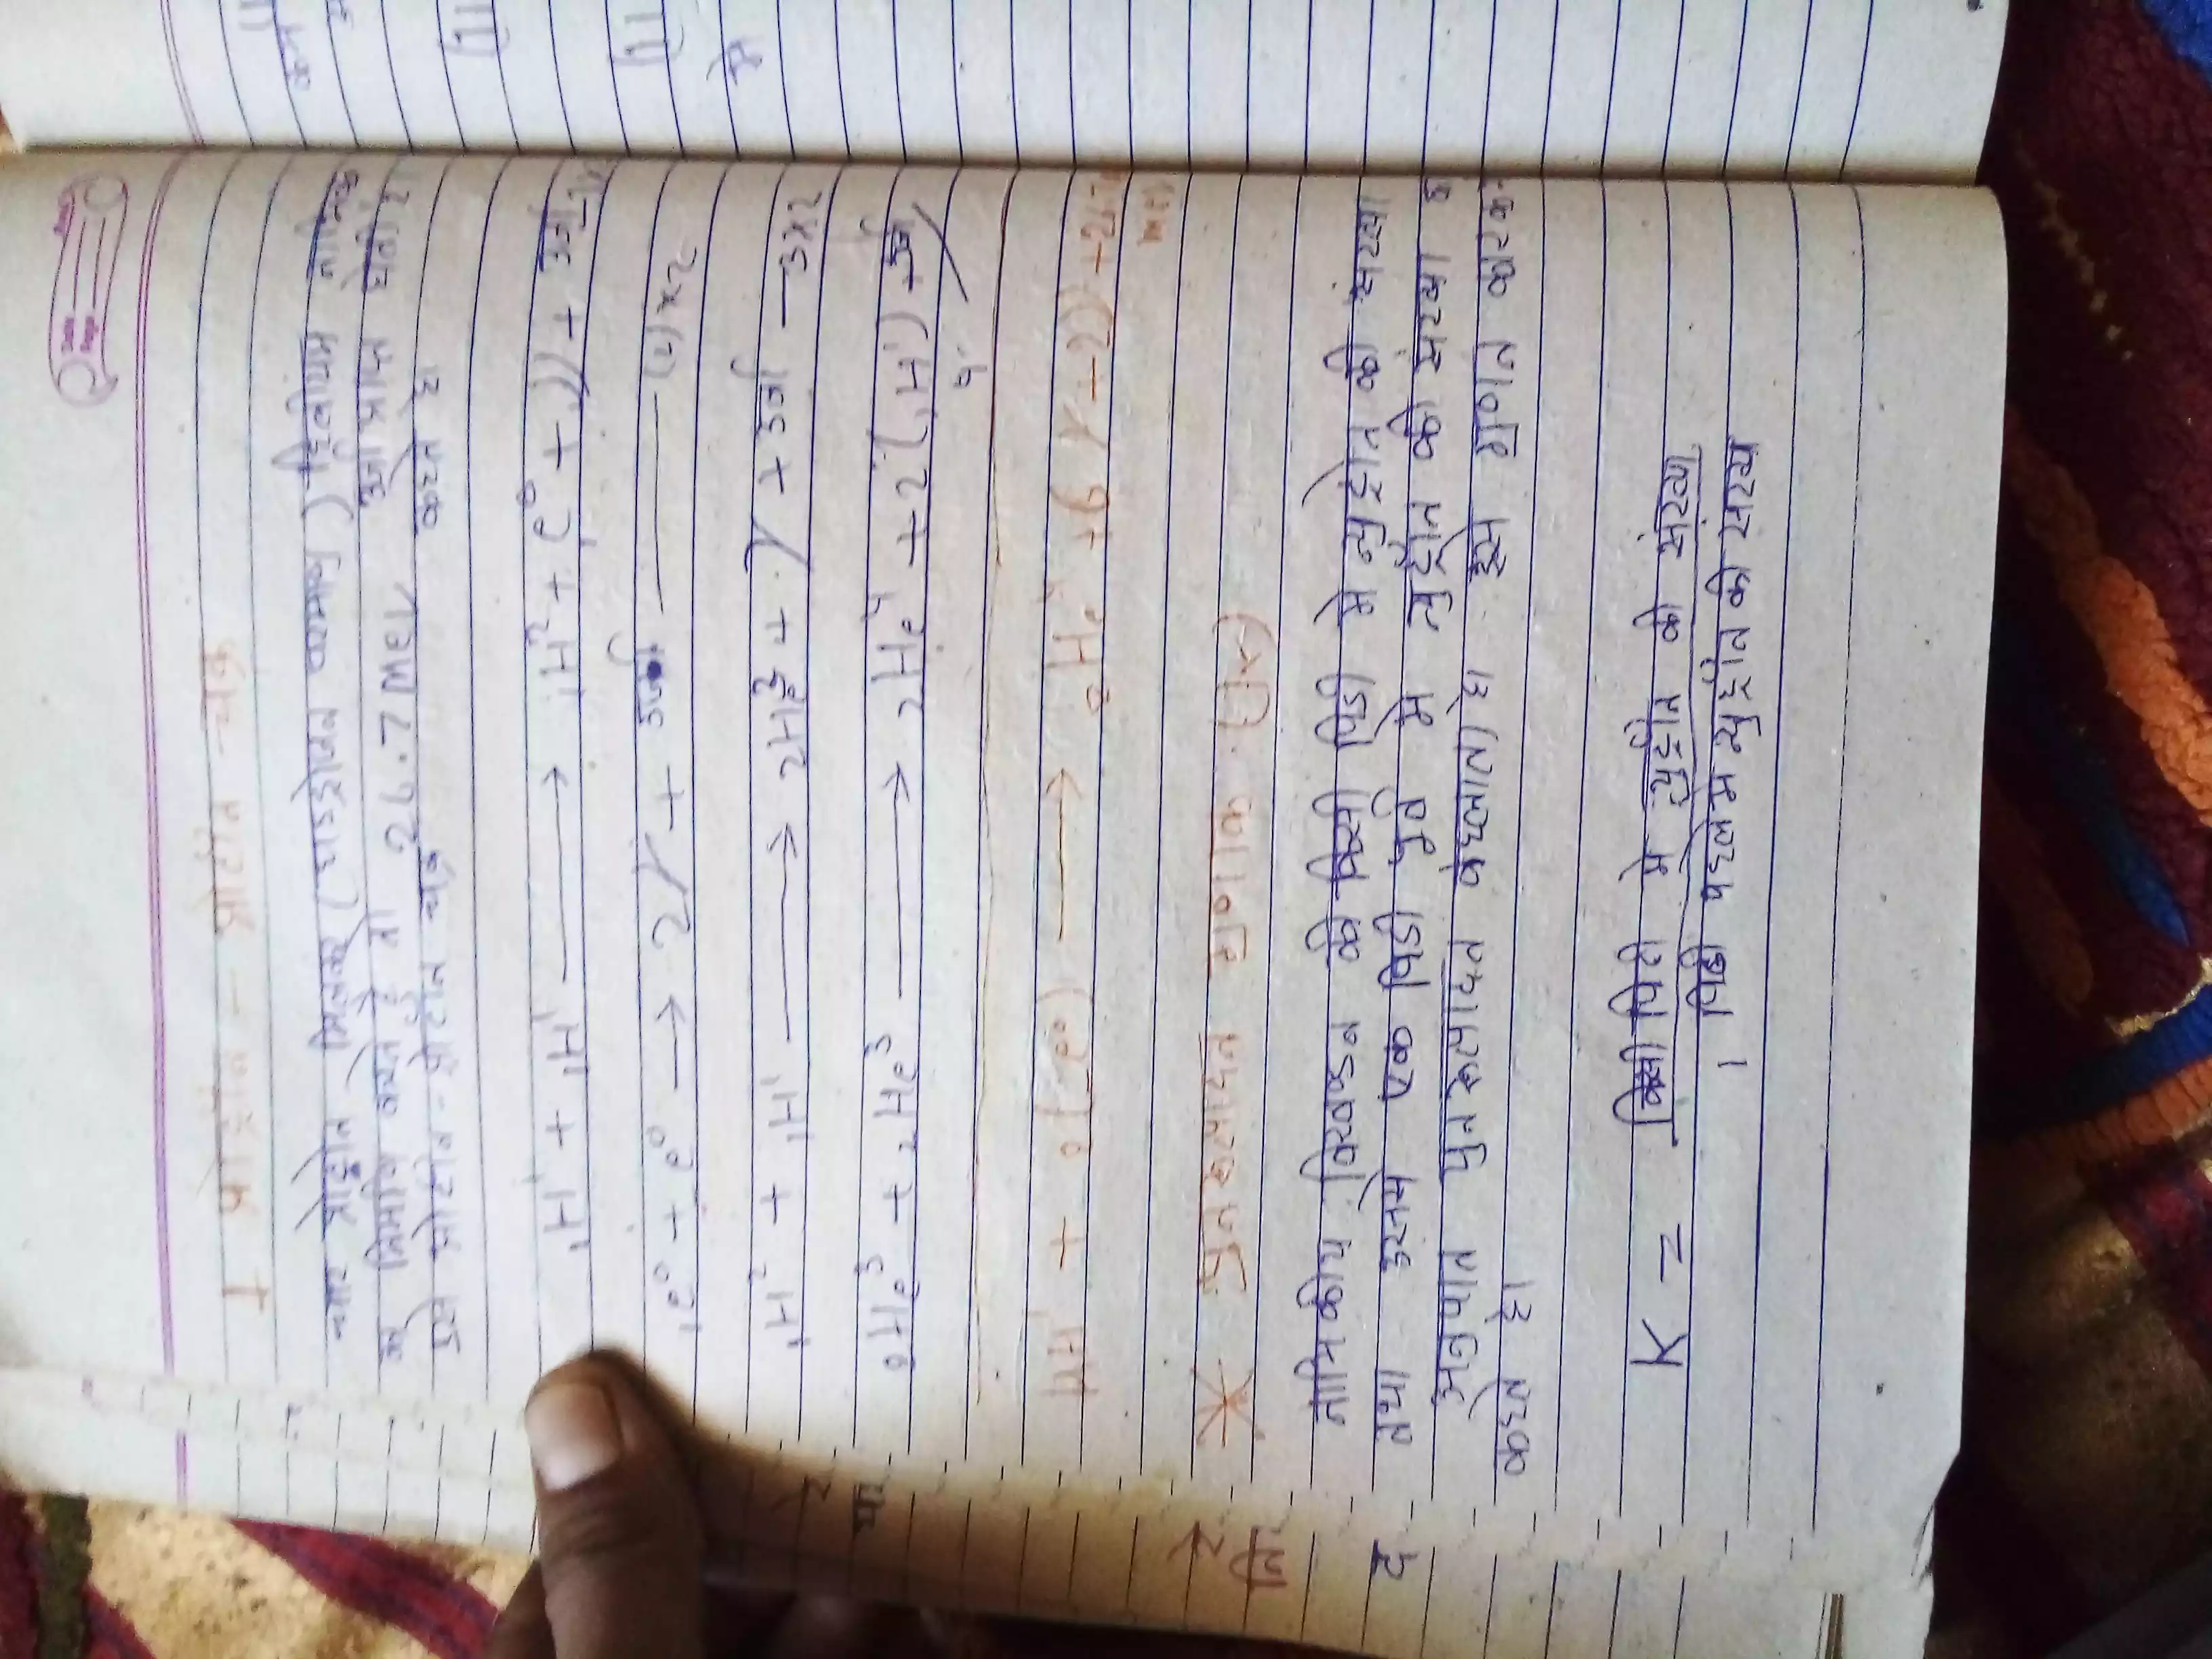 I प्रोट्रोन - प्रोटोन चक्र
चार प्रोट्रोन मिलकर (हाइड्रोजन परमाणु) हिलीयम नाभिक
का निर्माण करते है तो 26.7 MeV ऊर्जा प्राप्त होती है।
इसे प्रोटोन - प्रोटोन चक्र कहते है
₁H¹ + ₁H¹ ⟶ ₁H² + ₁e⁰ + ν + ऊर्जा
₁e⁰ + e⁰ → 2γ + ऊर्जा —— (2) x2
₁H² + ₁H¹ ⟶ 2He3 + γ + ऊर्जा — 3x2
He³ + ₂He³ ⟶ ₂He⁴ + 2(₁H¹) + ऊर्जा
4
4H¹ + 2(e⁰) ⟶ ₂He⁴ + 6γ + 2ν + 26.7
mev
* पुनरुत्पादन गुणांक (K)
नाभिकीय विखण्डन की किसी पिडी मे न्युट्रोन की संख्या
तथा उसमे एक पिडी पुर्व मे न्युट्रोन की संख्या क
अनुपात पुनरुत्पादन केहलाता है इसे गुणन कारक
कहते है।
K = किसी पिडी मे न्युट्रोन की संख्या
1 पिढी पहले मे न्युट्रोन की संख्य